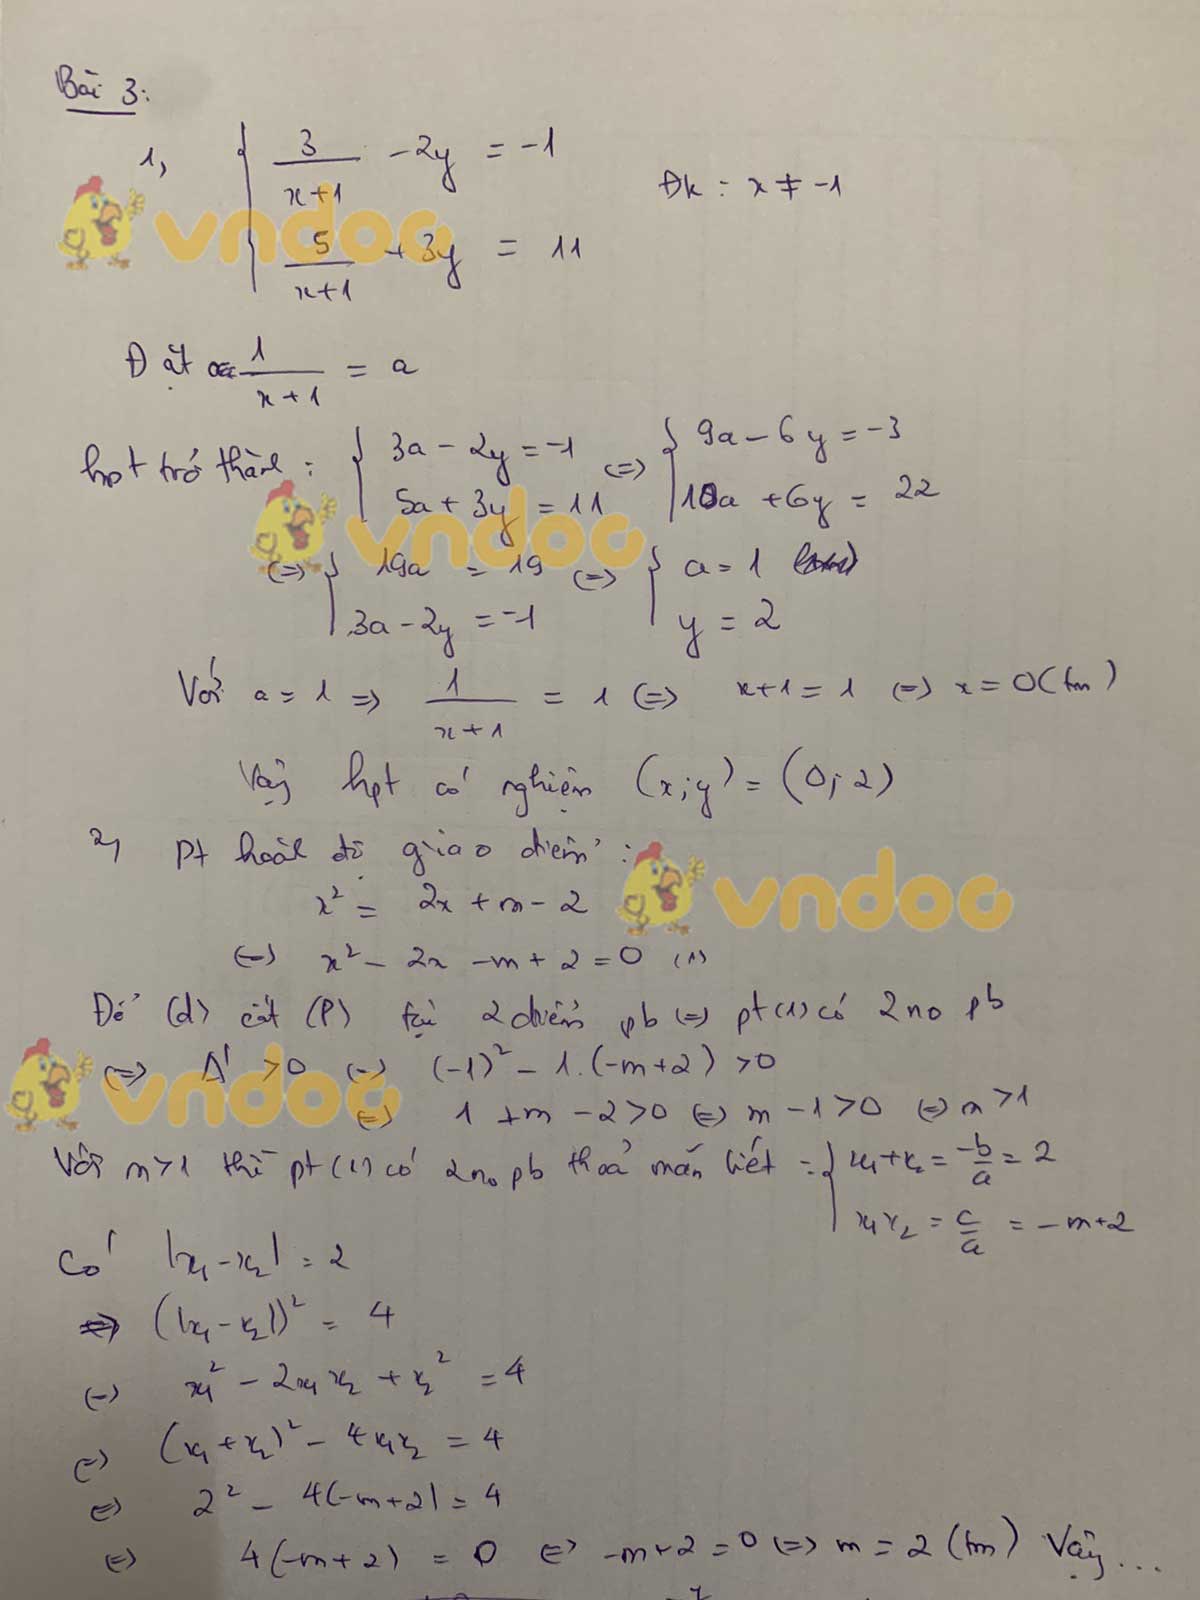 Bài 3:
1, { 3/(x+1) - 2y = -1
5/(x+1) + 3y = 11
Đk : x ≠ -1
Đặt 1/(x+1) = a
hpt trở thành : { 3a - 2y = -1 (=) { 9a - 6y = -3
5a + 3y = 11 10a + 6y = 22
(=) { 19a = 19 (=) { a = 1
3a - 2y = -1 y = 2
Với a = 1 => 1/(x+1) = 1 (=) x+1 = 1 (=) x = 0 (tm)
Vậy hpt có nghiệm (x;y) = (0; 2)
2, Pt hoành độ giao điểm :
x² = 2x + m - 2
(=) x² - 2x - m + 2 = 0 (1)
Để (d) cắt (P) tại 2 điểm pb (=) pt (1) có 2 no pb
(=) Δ' > 0 (=) (-1)² - 1.(-m+2) > 0
(=) 1 + m - 2 > 0 (=) m - 1 > 0 (=) m > 1
Với m > 1 thì pt (1) có 2 no pb thoả mãn Viét : { x₁ + x₂ = -b/a = 2
x₁x₂ = c/a = -m+2
Có |x₁ - x₂| = 2
(=) (|x₁ - x₂|)² = 4
(=) x₁² - 2x₁x₂ + x₂² = 4
(=) (x₁ + x₂)² - 4x₁x₂ = 4
(=) 2² - 4(-m+2) = 4
(=) 4(-m+2) = 0 (=) -m+2 = 0 (=) m = 2 (tm) Vậy ...
vndoc
vndoc
vndoc
vndoc